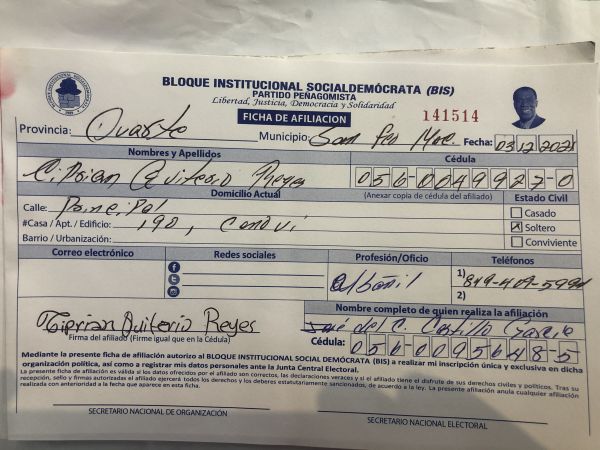 BLOQUE INSTITUCIONAL SOCIALDEMÓCRATA (BIS)
PARTIDO PEÑAGOMISTA
Libertad, Justicia, Democracia y Solidaridad
FICHA DE AFILIACION
141514
Provincia: Duarte Municipio: San Fco Mac. Fecha: 03/12/2021
Nombres y Apellidos Cédula
Ciprian Quiterio Reyes 056-0049927-0
Domicilio Actual (Anexar copia de cédula del afiliado) Estado Civil
Calle: Principal Casado
#Casa / Apt. / Edificio: 190, Cenovi Soltero
Barrio / Urbanización: Conviviente
Correo electrónico Redes sociales Profesión/Oficio Teléfonos
Albañil 1) 849-409-
2)
Nombre completo de quien realiza la afiliación
Ciprian Quiterio Reyes José del C. Castillo García
Firma del afiliado (Firme igual que en la Cédula) Cédula: 056-0095648-5
Mediante la presente ficha de afiliación autorizo al BLOQUE INSTITUCIONAL SOCIAL DEMÓCRATA (BIS) a realizar mi inscripción única y exclusiva en dicha
organización política, así como a registrar mis datos personales ante la Junta Central Electoral.
La presente ficha de afiliación es válida si los datos ofrecidos por el afiliado son correctos, las declaraciones veraces y si el afiliado tiene el disfrute de sus derechos civiles y políticos. Tras su
recepción, sello y firmas autorizadas el afiliado ejercerá todos los derechos y los deberes estatutariamente sancionados, de acuerdo a la ley. La presente afiliación anula cualquier afiliación
realizada con anterioridad a la fecha que aparece en esta ficha.
SECRETARIO NACIONAL DE ORGANIZACIÓN SECRETARIO NACIONAL ELECTORAL